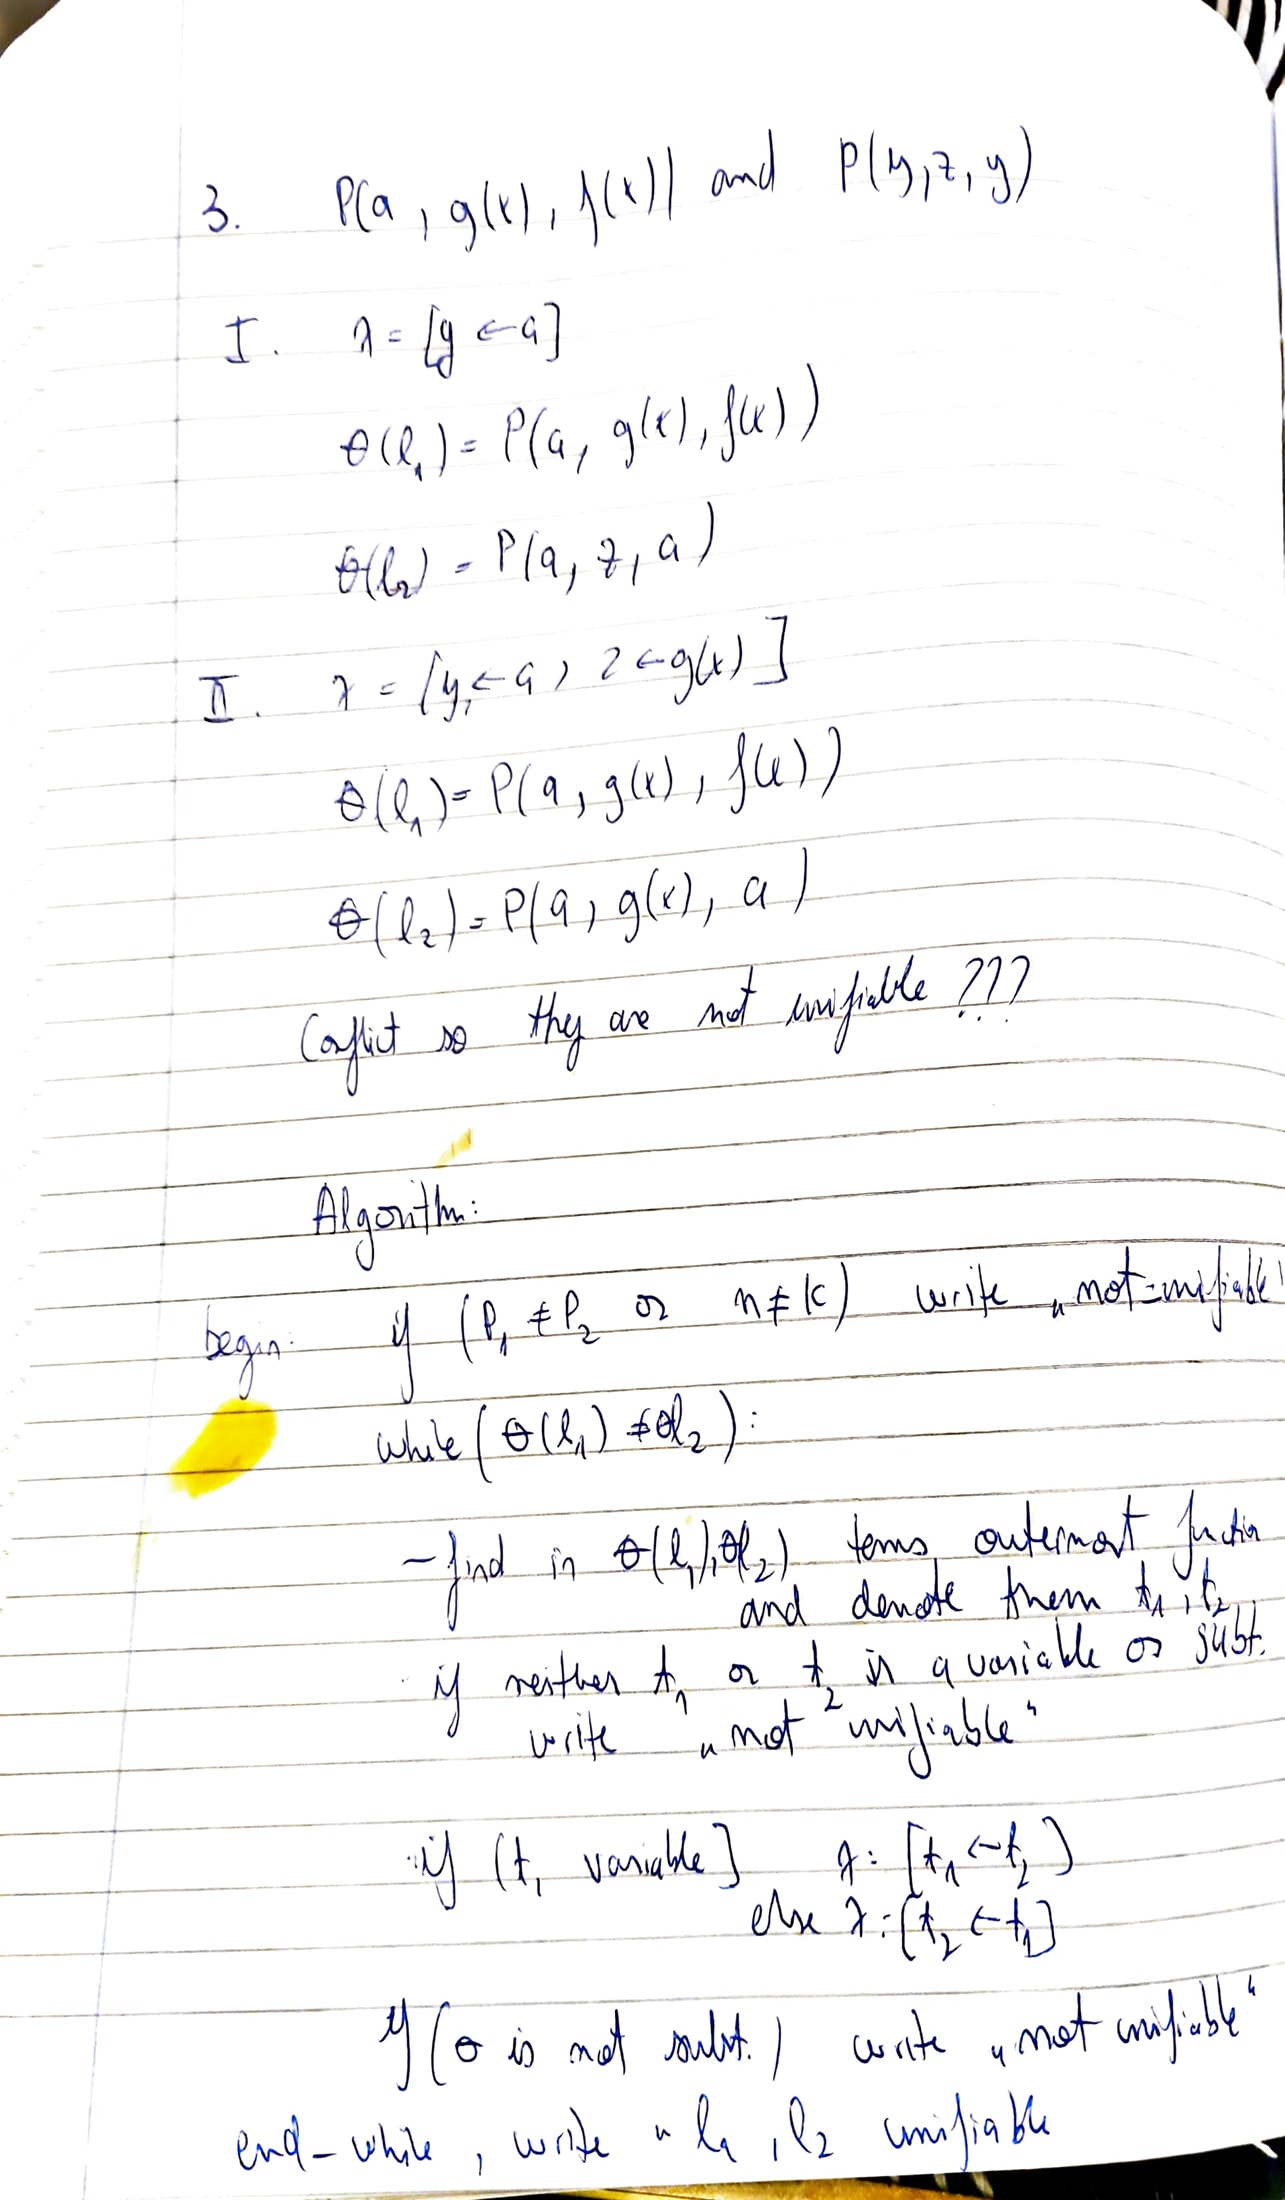 3. P(a, g(x), f(x)) and P(y, z, y)
I. λ = [y ← a]
θ(l₁) = P(a, g(x), f(x))
θ(l₂) = P(a, z, a)
II. λ = [y ← a, z ← g(x)]
θ(l₁) = P(a, g(x), f(x))
θ(l₂) = P(a, g(x), a)
Conflict so they are not unifiable ???
Algorithm:
begin: if (P₁ ≠ P₂ or n ≠ k) write „not-unifiable"
while (θ(l₁) ≠ θl₂):
- find in θ(l₁), θ(l₂) terms, outermost functio
and denote them t₁, t₂
if neither t₁ or t₂ is a variable or subt.
write „not unifiable"
if (t₁ variable] λ: [t₁ ← t₂]
else λ: [t₂ ← t₁]
if (θ is not subst.) write „not unifiable"
end-while, write „l₁, l₂ unifiable